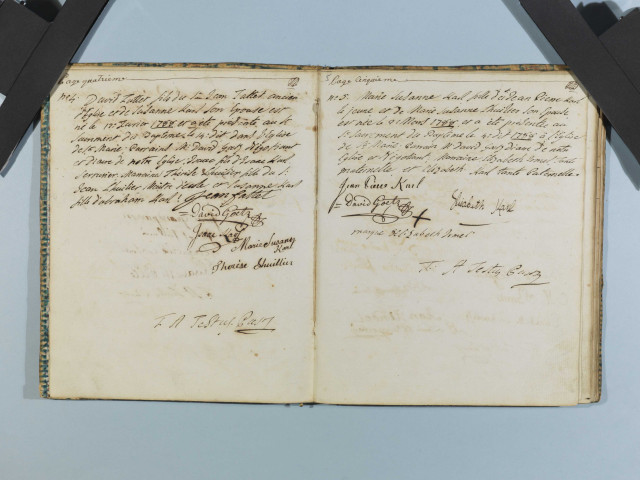 Page quatrième
No 4. David Tallet fils du Sr Jean Tallet ancien
d'Eglise et de Susanne Karl son Epouse est
né le 12 Fevrier 1788 et a été présenté au St
Sacrement du Baptême le dit dans l'Eglise
de Ste Marie Parrains Mr David Goetz
et diacre de notre Eglise Jonas Karl
Serrurier Marraines Therese Lhuillier fille du Sr
Jean Lhuillier Maitre d'ecole et Susanne Karl
fille d'Abraham Karl Jean Tallet
David Goetz
Jonas Karl
Marie Susanne
Karl
Therese Lhuillier
T A Testuz Past
Page cinquième
No 5. Marie Susanne Karl fille de Jean Pierre Karl
le jeune et de Marie Susanne Lhuillier son Epouse
est née le Mars 1788 et a été présentée au
St Sacrement du Baptême le dit 1788 à l'Eglise
de Ste Marie Parrain Mr David Goetz Diacre de notre
Eglise et Negotiant Marraines Elizabeth tante
maternelle et Elizabeth Karl tante Paternelle
Jean Pierre Karl
David Goetz
Elizabeth Karl
marque d'Elizabeth
T A Testuz Past